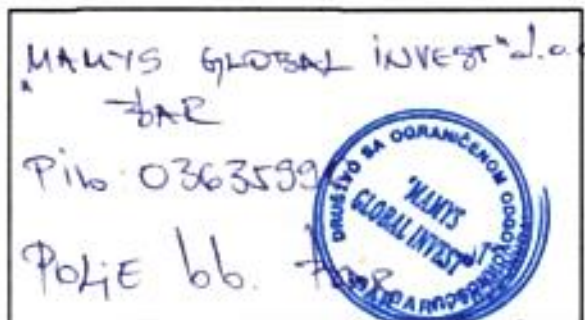 "MAMYS GLOBAL INVEST" d.o.
BAR
Pib: 0363599
POLJE bb. BAR
DRUŠTVO SA OGRANIČENOM ODGOVORNOŠĆU
"MAMYS
GLOBAL INVEST"
BAR